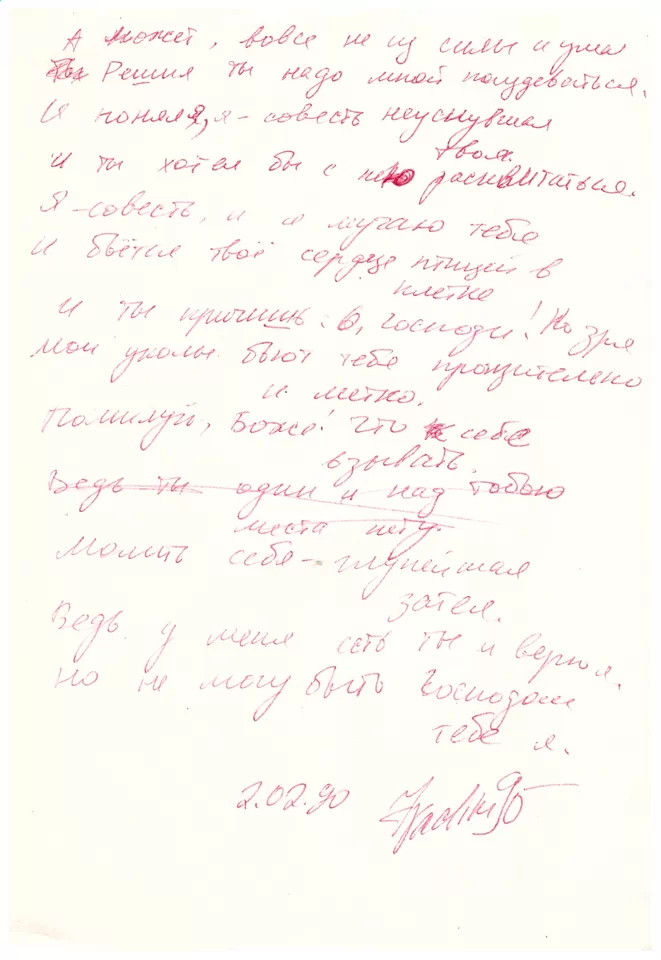 А может, вовсе не из силы и ума
Решил ты надо мной поиздеваться.
И понял, я – совесть неуснувшая
твоя.
И ты хотел бы с нею расквитаться.
Я – совесть, и я мучаю тебя
И бьётся твоё сердце птицей в
клетке
И ты кричишь: О, господи! Но зря
Мои уколы бьют тебе пронзительно
и метко.
Помилуй, Боже! Что к себе
взывать.
Ведь ты один и над тобою
места нету.
Молить себя – глупейшая
затея.
Ведь у меня есть ты и верю я.
Но не могу быть Господом
тебе я.
2.02.90